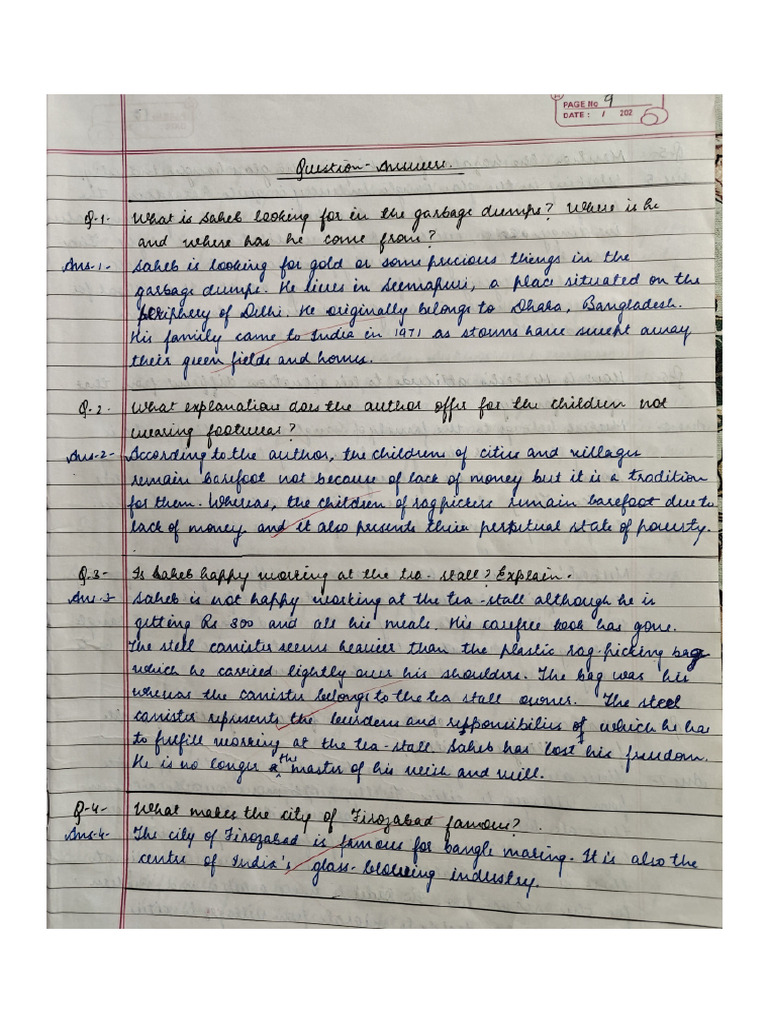 PAGE No 9
DATE: / 202
Question-Answers.
Q-1- What is Saheb looking for in the garbage dumps? Where is he
and where has he come from?
Ans-1- Saheb is looking for gold or some precious things in the
garbage dumps. He lives in Seemapuri, a place situated on the
periphery of Delhi. He originally belongs to Dhaka, Bangladesh.
His family came to India in 1971 as storms have swept away
their green fields and homes.
Q-2- What explanation does the author offer for the children not
wearing footwear?
Ans-2- According to the author, the children of cities and villages
remain barefoot not because of lack of money but it is a tradition
for them. Whereas, the children of ragpickers remain barefoot due to
lack of money and it also presents their perpetual state of poverty.
Q-3- Is Saheb happy working at the tea-stall? Explain.
Ans-3- Saheb is not happy working at the tea-stall although he is
getting Rs 300 and all his meals. His carefree look has gone.
The steel canister seems heavier than the plastic rag-picking bag
which he carried lightly over his shoulders. The bag was his
whereas the canister belongs to the tea stall owner. The steel
canister represents the burdens and responsibilities of which he has
to fulfill working at the tea-stall. Saheb has lost his freedom.
He is no longer the master of his wish and will.
Q-4- What makes the city of Firozabad famous?
Ans-4- The city of Firozabad is famous for bangle making. It is also the
centre of India's glass-blowing industry.